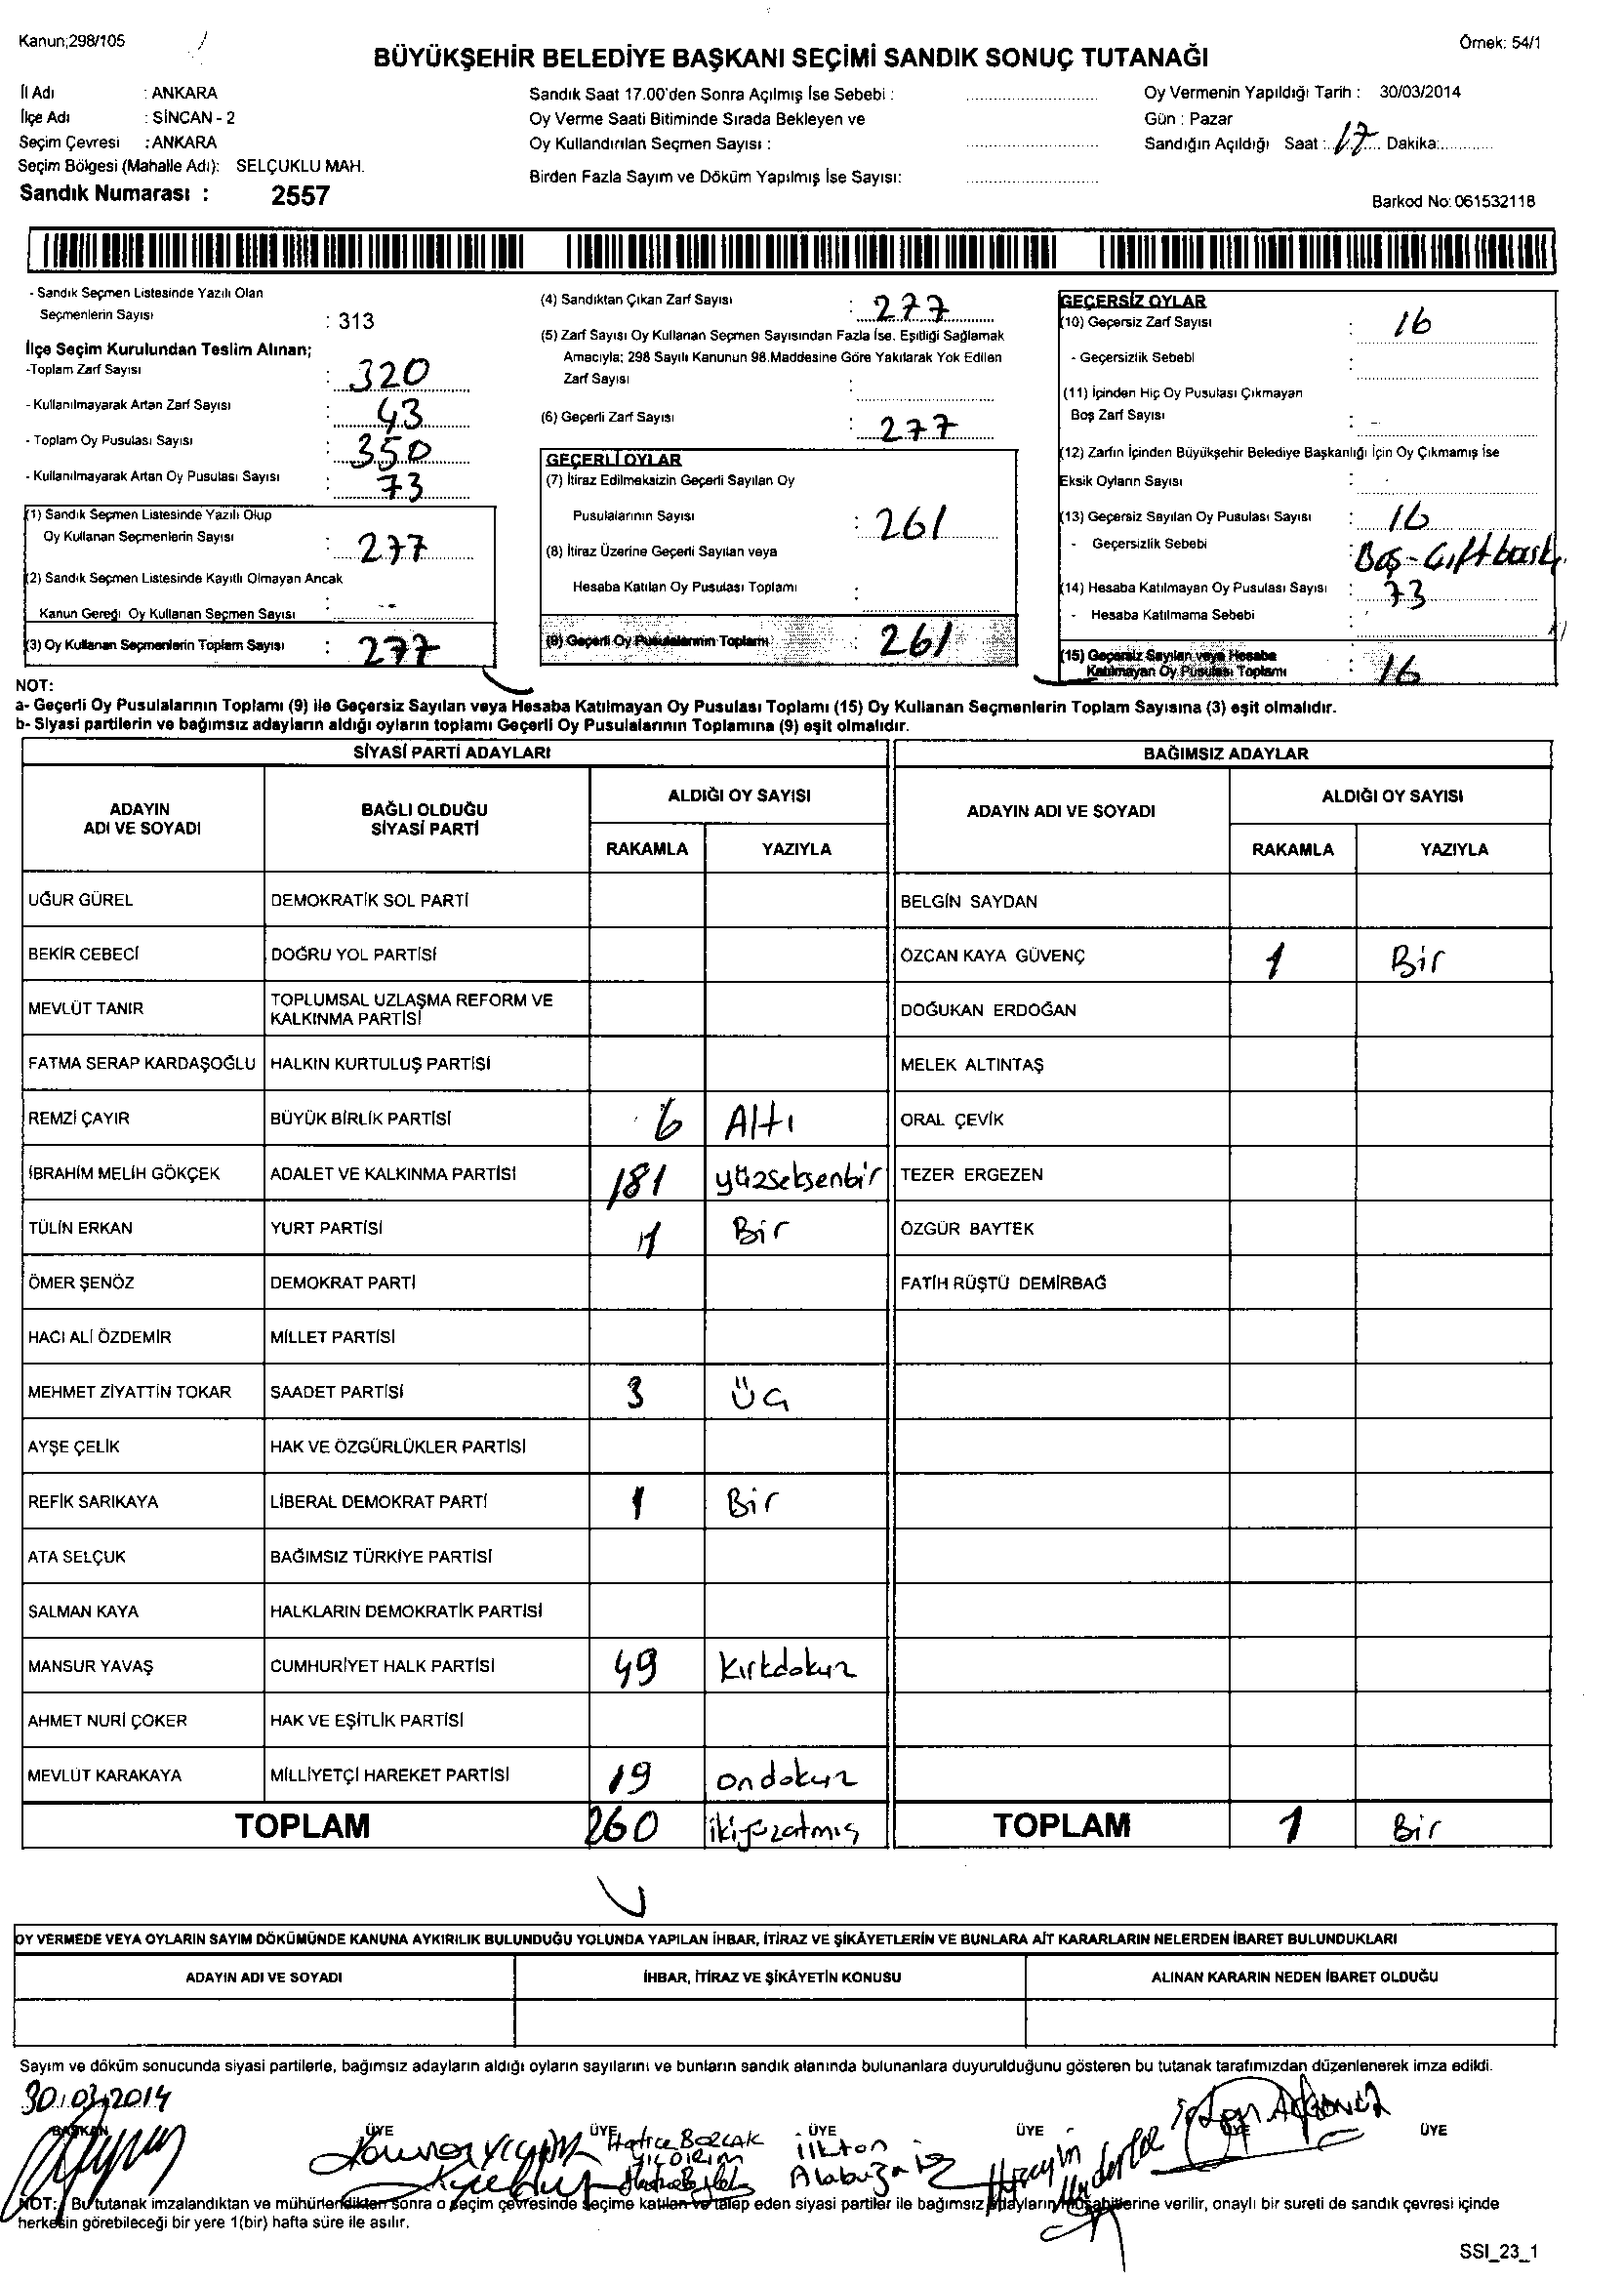 Kanun;298/105
Örnek: 54/1
BÜYÜKŞEHİR BELEDİYE BAŞKANI SEÇİMİ SANDIK SONUÇ TUTANAĞI
İl Adı : ANKARA
İlçe Adı : SİNCAN - 2
Seçim Çevresi : ANKARA
Seçim Bölgesi (Mahalle Adı): SELÇUKLU MAH.
Sandık Numarası : 2557
Sandık Saat 17.00'den Sonra Açılmış İse Sebebi :
Oy Verme Saati Bitiminde Sırada Bekleyen ve
Oy Kullandırılan Seçmen Sayısı :
Birden Fazla Sayım ve Döküm Yapılmış İse Sayısı:
Oy Vermenin Yapıldığı Tarih : 30/03/2014
Gün : Pazar
Sandığın Açıldığı Saat : 17 Dakika:
Barkod No: 061532118
- Sandık Seçmen Listesinde Yazılı Olan
Seçmenlerin Sayısı : 313
İlçe Seçim Kurulundan Teslim Alınan;
-Toplam Zarf Sayısı : 320
- Kullanılmayarak Artan Zarf Sayısı : 43
- Toplam Oy Pusulası Sayısı : 350
- Kullanılmayarak Artan Oy Pusulası Sayısı : 73
(1) Sandık Seçmen Listesinde Yazılı Olup
Oy Kullanan Seçmenlerin Sayısı : 277
(2) Sandık Seçmen Listesinde Kayıtlı Olmayan Ancak
Kanun Gereği Oy Kullanan Seçmen Sayısı : --
(3) Oy Kullanan Seçmenlerin Toplam Sayısı : 277
(4) Sandıktan Çıkan Zarf Sayısı : 277
(5) Zarf Sayısı Oy Kullanan Seçmen Sayısından Fazla İse, Eşitliği Sağlamak
Amacıyla; 298 Sayılı Kanunun 98.Maddesine Göre Yakılarak Yok Edilen
Zarf Sayısı :
(6) Geçerli Zarf Sayısı : 277
GEÇERLİ OYLAR
(7) İtiraz Edilmeksizin Geçerli Sayılan Oy
Pusulalarının Sayısı : 261
(8) İtiraz Üzerine Geçerli Sayılan veya
Hesaba Katılan Oy Pusulası Toplamı :
(9) Geçerli Oy Pusulalarının Toplamı : 261
GEÇERSİZ OYLAR
(10) Geçersiz Zarf Sayısı : 16
- Geçersizlik Sebebi :
(11) İçinden Hiç Oy Pusulası Çıkmayan
Boş Zarf Sayısı : -
(12) Zarfın İçinden Büyükşehir Belediye Başkanlığı İçin Oy Çıkmamış İse
Eksik Oyların Sayısı :
(13) Geçersiz Sayılan Oy Pusulası Sayısı : 16
- Geçersizlik Sebebi : Boş-Çift baskı
(14) Hesaba Katılmayan Oy Pusulası Sayısı : 73
- Hesaba Katılmama Sebebi :
(15) Geçersiz Sayılan veya Hesaba
Katılmayan Oy Pusulası Toplamı : 16
NOT:
a- Geçerli Oy Pusulalarının Toplamı (9) ile Geçersiz Sayılan veya Hesaba Katılmayan Oy Pusulası Toplamı (15) Oy Kullanan Seçmenlerin Toplam Sayısına (3) eşit olmalıdır.
b- Siyasi partilerin ve bağımsız adayların aldığı oyların toplamı Geçerli Oy Pusulalarının Toplamına (9) eşit olmalıdır.
SİYASİ PARTİ ADAYLARI
ADAYIN ADI VE SOYADI BAĞLI OLDUĞU SİYASİ PARTİ ALDIĞI OY SAYISI RAKAMLA YAZIYLA
UĞUR GÜREL DEMOKRATİK SOL PARTİ
BEKİR CEBECİ DOĞRU YOL PARTİSİ
MEVLÜT TANIR TOPLUMSAL UZLAŞMA REFORM VE KALKINMA PARTİSİ
FATMA SERAP KARDAŞOĞLU HALKIN KURTULUŞ PARTİSİ
REMZİ ÇAYIR BÜYÜK BİRLİK PARTİSİ 6 Altı
İBRAHİM MELİH GÖKÇEK ADALET VE KALKINMA PARTİSİ 181 yüzseksenbir
TÜLİN ERKAN YURT PARTİSİ 1 Bir
ÖMER ŞENÖZ DEMOKRAT PARTİ
HACI ALİ ÖZDEMİR MİLLET PARTİSİ
MEHMET ZİYATTİN TOKAR SAADET PARTİSİ 3 Üç
AYŞE ÇELİK HAK VE ÖZGÜRLÜKLER PARTİSİ
REFİK SARIKAYA LİBERAL DEMOKRAT PARTİ 1 Bir
ATA SELÇUK BAĞIMSIZ TÜRKİYE PARTİSİ
SALMAN KAYA HALKLARIN DEMOKRATİK PARTİSİ
MANSUR YAVAŞ CUMHURİYET HALK PARTİSİ 49 Kırkdokuz
AHMET NURİ ÇOKER HAK VE EŞİTLİK PARTİSİ
MEVLÜT KARAKAYA MİLLİYETÇİ HAREKET PARTİSİ 19 ondokuz
TOPLAM 260 ikiyüzatmış
BAĞIMSIZ ADAYLAR
ADAYIN ADI VE SOYADI ALDIĞI OY SAYISI RAKAMLA YAZIYLA
BELGİN SAYDAN
ÖZCAN KAYA GÜVENÇ 1 Bir
DOĞUKAN ERDOĞAN
MELEK ALTINTAŞ
ORAL ÇEVİK
TEZER ERGEZEN
ÖZGÜR BAYTEK
FATİH RÜŞTÜ DEMİRBAĞ
TOPLAM 1 Bir
OY VERMEDE VEYA OYLARIN SAYIM DÖKÜMÜNDE KANUNA AYKIRILIK BULUNDUĞU YOLUNDA YAPILAN İHBAR, İTİRAZ VE ŞİKÂYETLERİN VE BUNLARA AİT KARARLARIN NELERDEN İBARET BULUNDUKLARI
ADAYIN ADI VE SOYADI İHBAR, İTİRAZ VE ŞİKÂYETİN KONUSU ALINAN KARARIN NEDEN İBARET OLDUĞU
Sayım ve döküm sonucunda siyasi partilerle, bağımsız adayların aldığı oyların sayılarını ve bunların sandık alanında bulunanlara duyurulduğunu gösteren bu tutanak tarafımızdan düzenlenerek imza edildi.
30.03.2014
BAŞKAN ÜYE ÜYE ÜYE ÜYE ÜYE ÜYE
Hatice BOZLAK
YILDIRIM
İlkton
NOT: Bu tutanak imzalandıktan ve mühürlendikten sonra o seçim çevresinde seçime katılan ve talep eden siyasi partiler ile bağımsız adayların müşahitlerine verilir, onaylı bir sureti de sandık çevresi içinde
herkesin görebileceği bir yere 1(bir) hafta süre ile asılır.
SSI_23_1